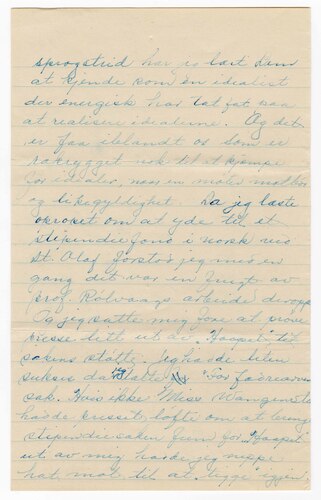 sprogstrid har jo lært dem
at kjende som en idealist
der energisk har tat fat paa
at realisere idealerne. Og det
er faa iblandt os som er
rakrygget nok til at kjempe
for idealer, naar en møter
og likegyldighet. Da jeg læste
opropet om at yde til et
stipendiefond i norsk ved
St. Olaf forstod jeg med en
gang det var en frugt av
prof. Rolvaags arbeide deroppe
Og jeg satte mig fore at prøve
presse litt ut av "Yaapit" til
sakens støtte. Jeg hadde liten
suksis da "For fædrearven
sak. Hvis ikke Miss
hadde presset løfte om at
stipendiesaken frem for "Yaapit"
ut av mig hadde jeg neppe
hat mot til at "tigge" igjen,